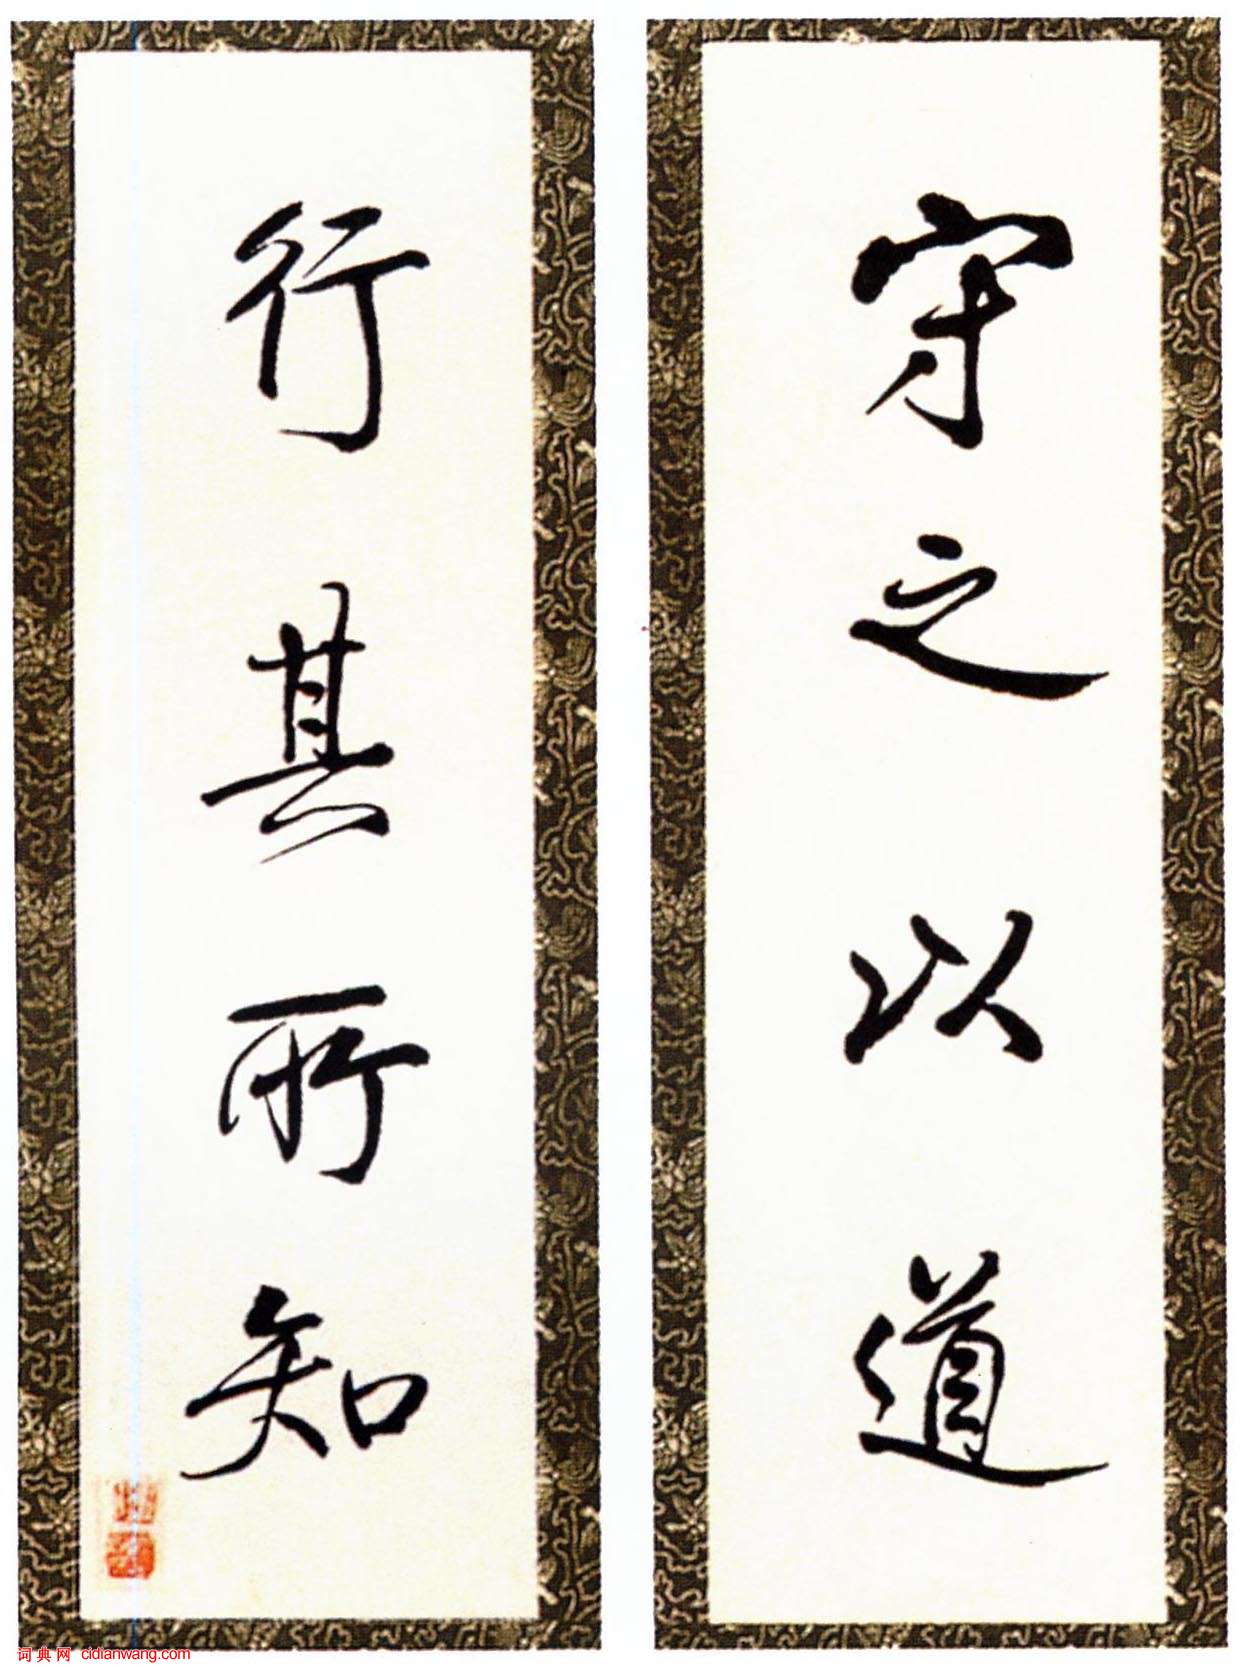 守之以道
行其所知
词典网 cidianwang.com